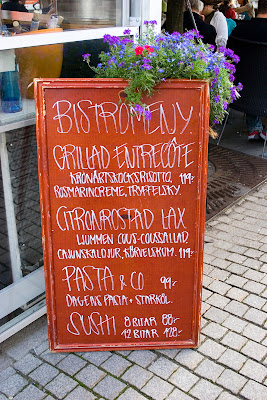 BISTROMENY
GRILLAD ENTRECÔTE
KRONÄRTSKOCKSRISOTTO, 119.-
ROSMARINCREME, TRYFFELSKY.
CITRONROSTAD LAX
LJUMMEN COUS-COUSSALLAD
CAJUNSKALDJUR, KÖRVELSKUM. 119.-
PASTA & CO 99.-
DAGENS PASTA + STARKÖL.
SUSHI 8 BITAR 88.-
12 BITAR 128.-